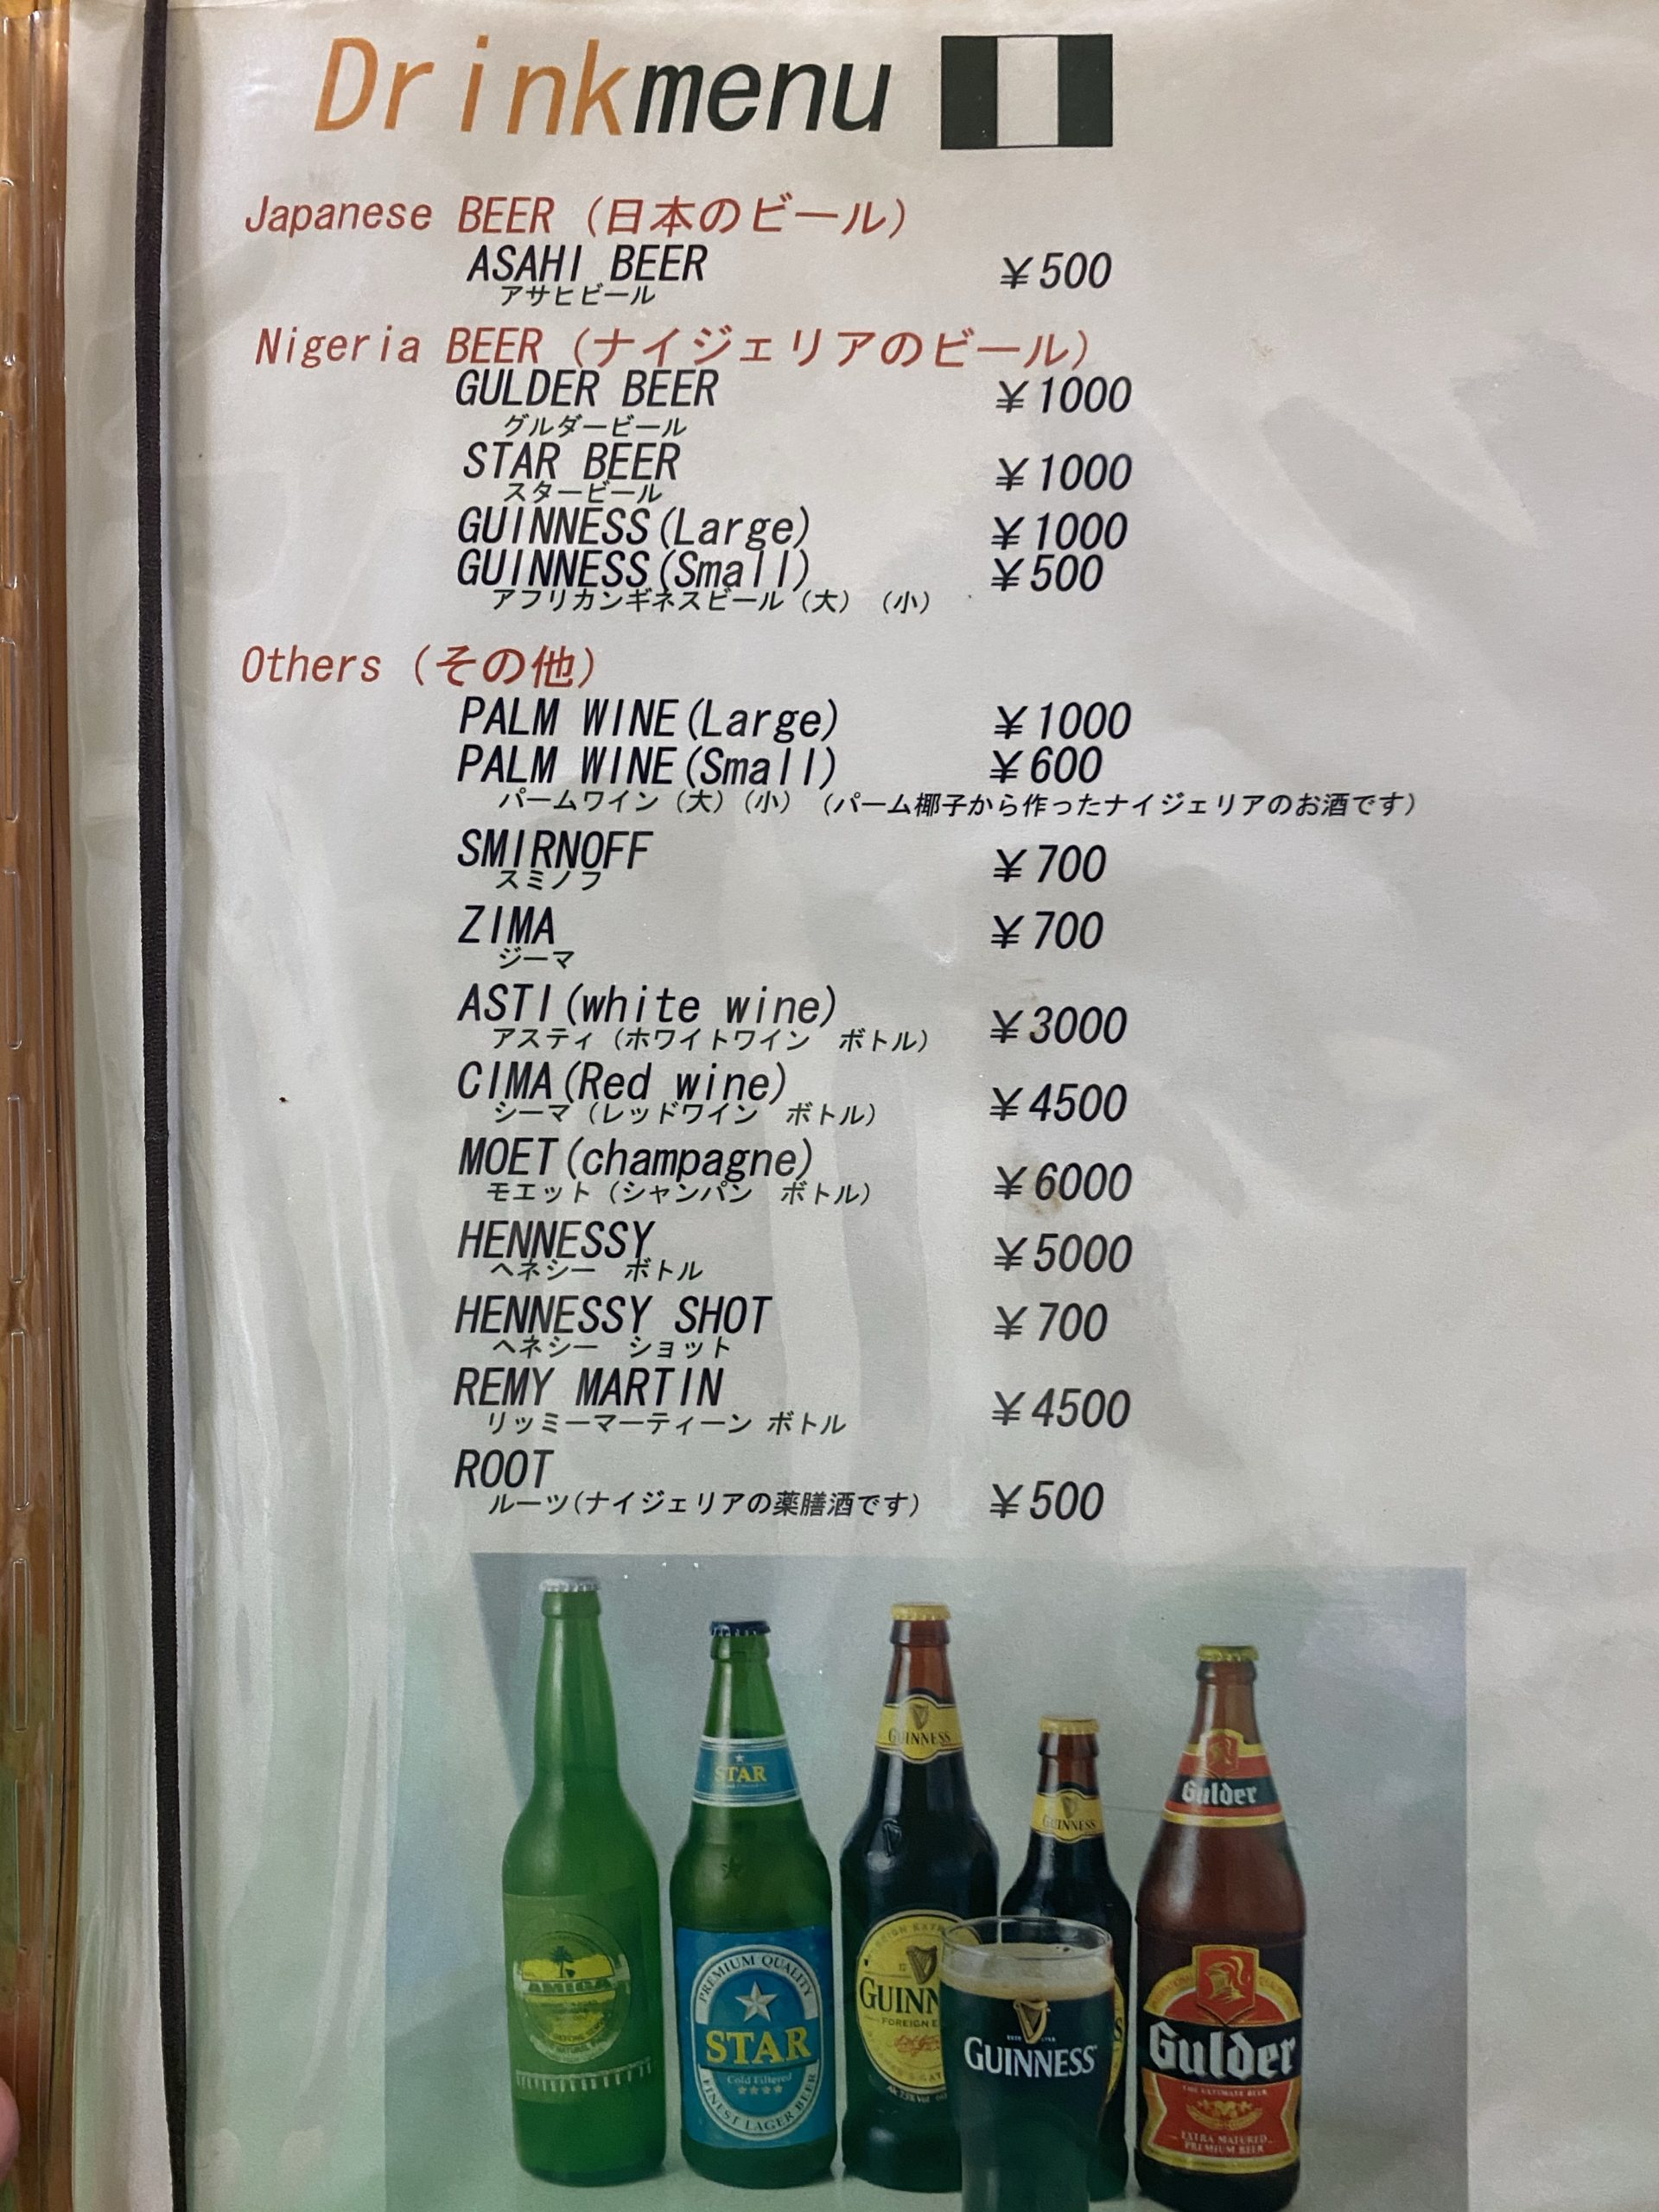 Drinkmenu
Japanese BEER (日本のビール)
ASAHI BEER ¥500
アサヒビール
Nigeria BEER (ナイジェリアのビール)
GULDER BEER ¥1000
グルダービール
STAR BEER ¥1000
スタービール
GUINNESS(Large) ¥1000
GUINNESS(Small) ¥500
アフリカンギネスビール（大）（小）
Others (その他)
PALM WINE(Large) ¥1000
PALM WINE(Small) ¥600
パームワイン（大）（小）（パーム椰子から作ったナイジェリアのお酒です）
SMIRNOFF ¥700
スミノフ
ZIMA ¥700
ジーマ
ASTI(white wine) ¥3000
アスティ（ホワイトワイン　ボトル）
CIMA(Red wine) ¥4500
シーマ（レッドワイン　ボトル）
MOET(champagne) ¥6000
モエット（シャンパン　ボトル）
HENNESSY ¥5000
ヘネシー　ボトル
HENNESSY SHOT ¥700
ヘネシー　ショット
REMY MARTIN ¥4500
リッミーマーティーン ボトル
ROOT ¥500
ルーツ(ナイジェリアの薬膳酒です)
STAR
GUINNESS
GUINNESS
Gulder
AMIGA
PREMIUM QUALITY
STAR
Cold Filtered
FINEST LAGER BEER
GUINN
FOREIGN E
GUINNESS
Gulder
THE ULTIMATE BEER
EXTRA MATURED
PREMIUM BEER